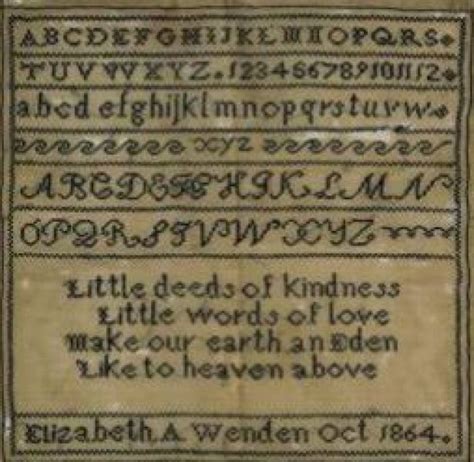 ABCDEFGHIJKLMNOPQRS
TUVWXYZ. 123456789101112
abcd efghijklmnopqrstuvw
xyz
ABCDEFGHIKLMN
OPQRSTVWXYZ
Little deeds of kindness
Little words of love
Make our earth an Eden
Like to heaven above
Elizabeth A Wenden Oct 1864.